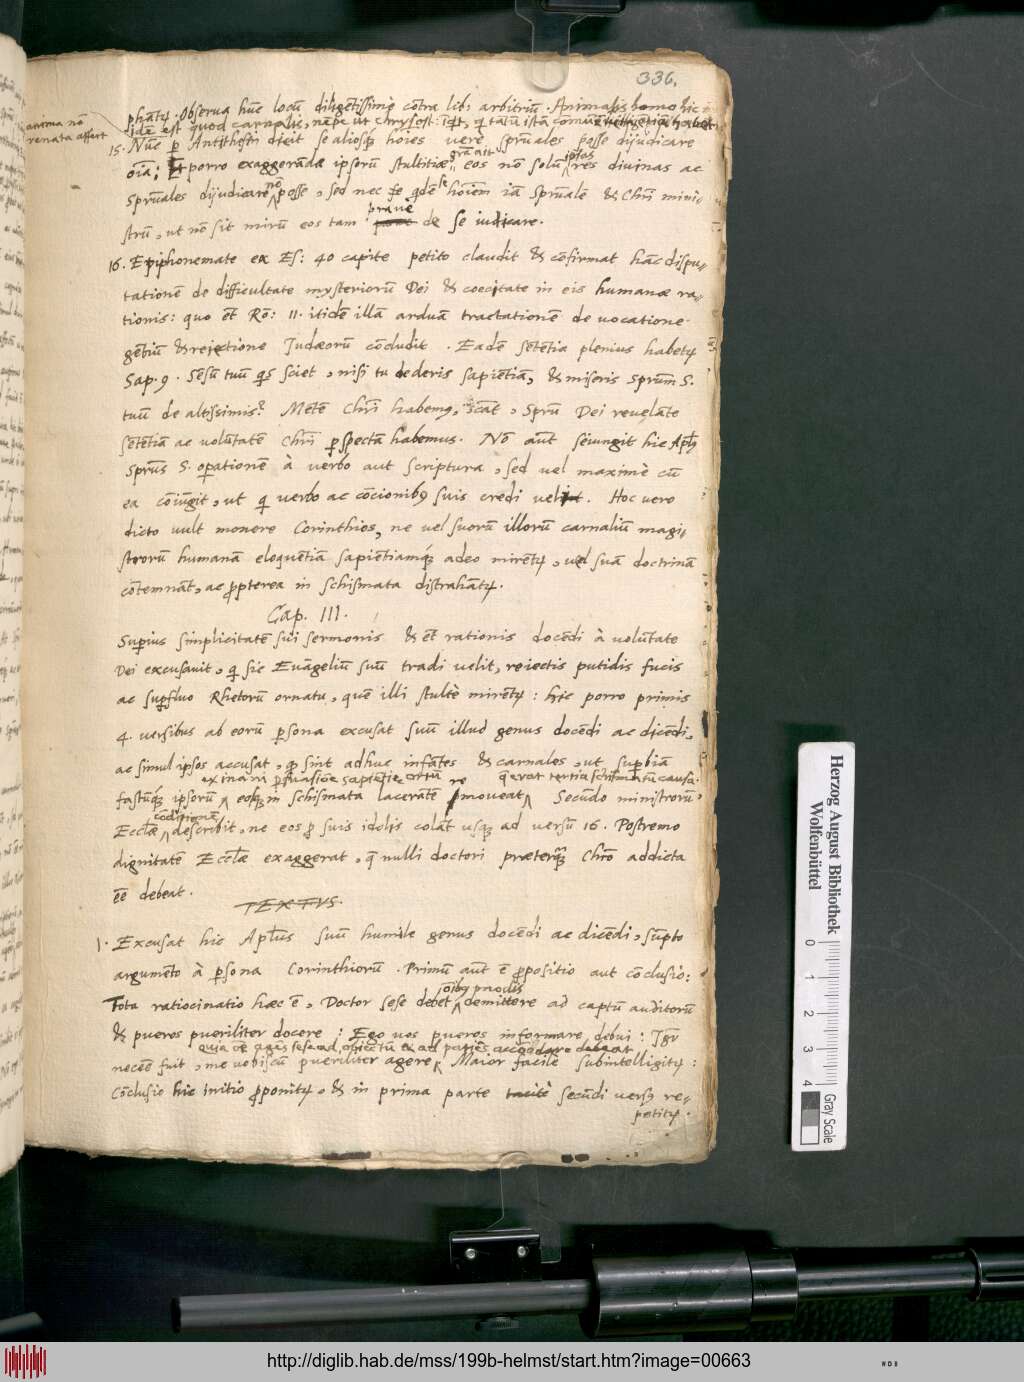 336.
phātꝫ. Observa hūc locū diligētissimè cōtra lib: arbitriū. Animalis homo hic
idē est quod carnalis, nāpe ut Chrysost:
anima nō
renata affert
15. Nūc ꝑ Antithesin dicit se aliosqꝫ hoīes verè sprūales posse dijudicare
oīa: Et porro exaggerādæ ipsorū stultitiæ eos nō solū res diuinas ac
ipsas
sprūales dijudicare nō posse, sed nec de qdē hoīem iā sprūalē & Chrī mini=
strū, ut nō sit mirū eos tam pravè de se iudicare.
16. Epiphonemate ex Es: 40 capite petito claudit & cōfirmat hāc dispu=
tationē de difficultate mysteriorū Dei & cœcitate in eis humanæ ra=
tionis: quo ēt Rō: 11. itidē illā arduā tractationē de vocatione
gētiū & rejectione Judæorū cōcludit. Eadē sētētia plenius habetꝫ
Sap. 9. Sēsū tuū qs sciet, nisi tu dederis sapiētiā, & miseris Sprūm S.
tuū de altissimis? Mētē Chrī habemꝰ, Sprū Dei revelāte
sētētiā ac volūtatē Chrī ꝑspectā habemus. Nō aūt seiungit hic Apls
Sprūs S. oꝑationē à verbo aut scriptura, sed vel maximè cū
ea cōiūgit, ut qi verbo ac cōcionibꝰ suis credi velit. Hoc vero
dicto vult monere Corinthios, ne vel suorū illorū carnaliū magi=
strorū humanā eloquētiā sapiētiamqꝫ adeo mirētꝫ, vel suā doctrinā
cōtemnāt, ac ꝓpterea in schismata distrahātꝫ.
Cap. III.
Suꝑius simplicitatē sui sermonis & ēt rationis docēdi à volūtate
Dei excusavit, qi sic Euāgeliū suū tradi velit, reiectis putidis fucis
ac suꝑfluo Rhetorū ornatu, quē illi stultè mirētꝫ: hic porro primis
4. versibus ab eorū ꝑsona excusat suū illud genus docēdi ac dicēdi,
ac simul ipsos accusat, qp sint adhuc infātes & carnales, ut suꝑbiā
ex inani ꝑsuasiōe sapiētiæ ortū
q erat tertia schismatū causa.
fastūqꝫ ipsorū, eosqꝫ in schismata laceratē ꝓmoveat, Secūdo ministrorū
cōditionē
Ecclæ describit, ne eos ꝓ suis idolis colāt usqꝫ ad versū 16. Postremo
dignitatē Ecclæ exaggerat, q nulli doctori præterqꝫ Chrō addicta
ēē debeat.
TEXTVS.
1. Excusat hic Aplūs suū humile genus docēdi ac dicēdi, sūpto
argumēto à ꝑsona Corinthiorū. Primū aūt ē ꝓpositio aut cōclusio:
Tota ratiocinatio hæc ē, Doctor sese debet demittere ad captū auditorū
& pueros pueriliter docere: Ego vos pueros informare debui: Igr
necēē fuit, me vobiscū pueriliter agere, Maior facilē subintelligitꝫ:
Cōclusio hic initio ꝓponitꝫ, & in prima parte tacitè secūdi versꝰ re=
petitꝫ.
Herzog August Bibliothek
Wolfenbüttel
0 1 2 3 4
Gray Scale
http://diglib.hab.de/mss/199b-helmst/start.htm?image=00663
WDB